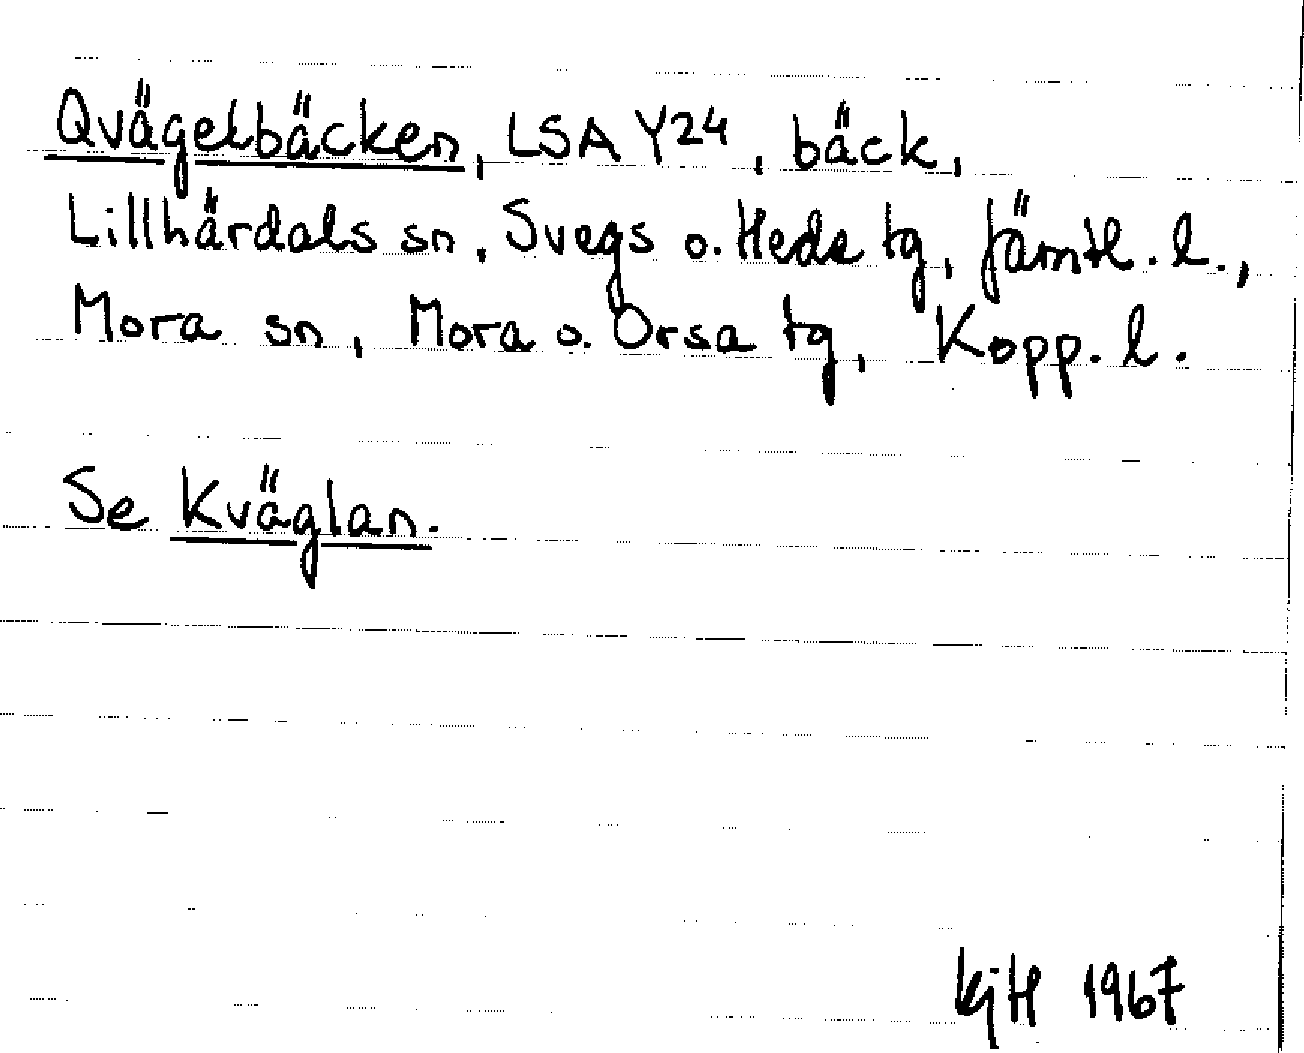 Qvägelbäcken, LSA Y24, bäck,
Lillhärdals sn, Svegs o. Heds tg, Jämtl. l.,
Mora sn, Mora o. Orsa tg, Kopp. l.
Se Kväglan.
KjH 1967